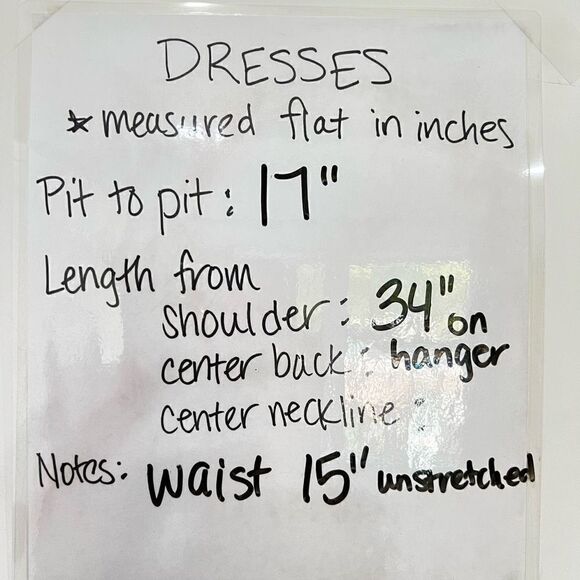 DRESSES
* measured flat in inches
Pit to pit : 17"
Length from
shoulder : 34" on
center back : hanger
center neckline :
Notes: waist 15" unstretched